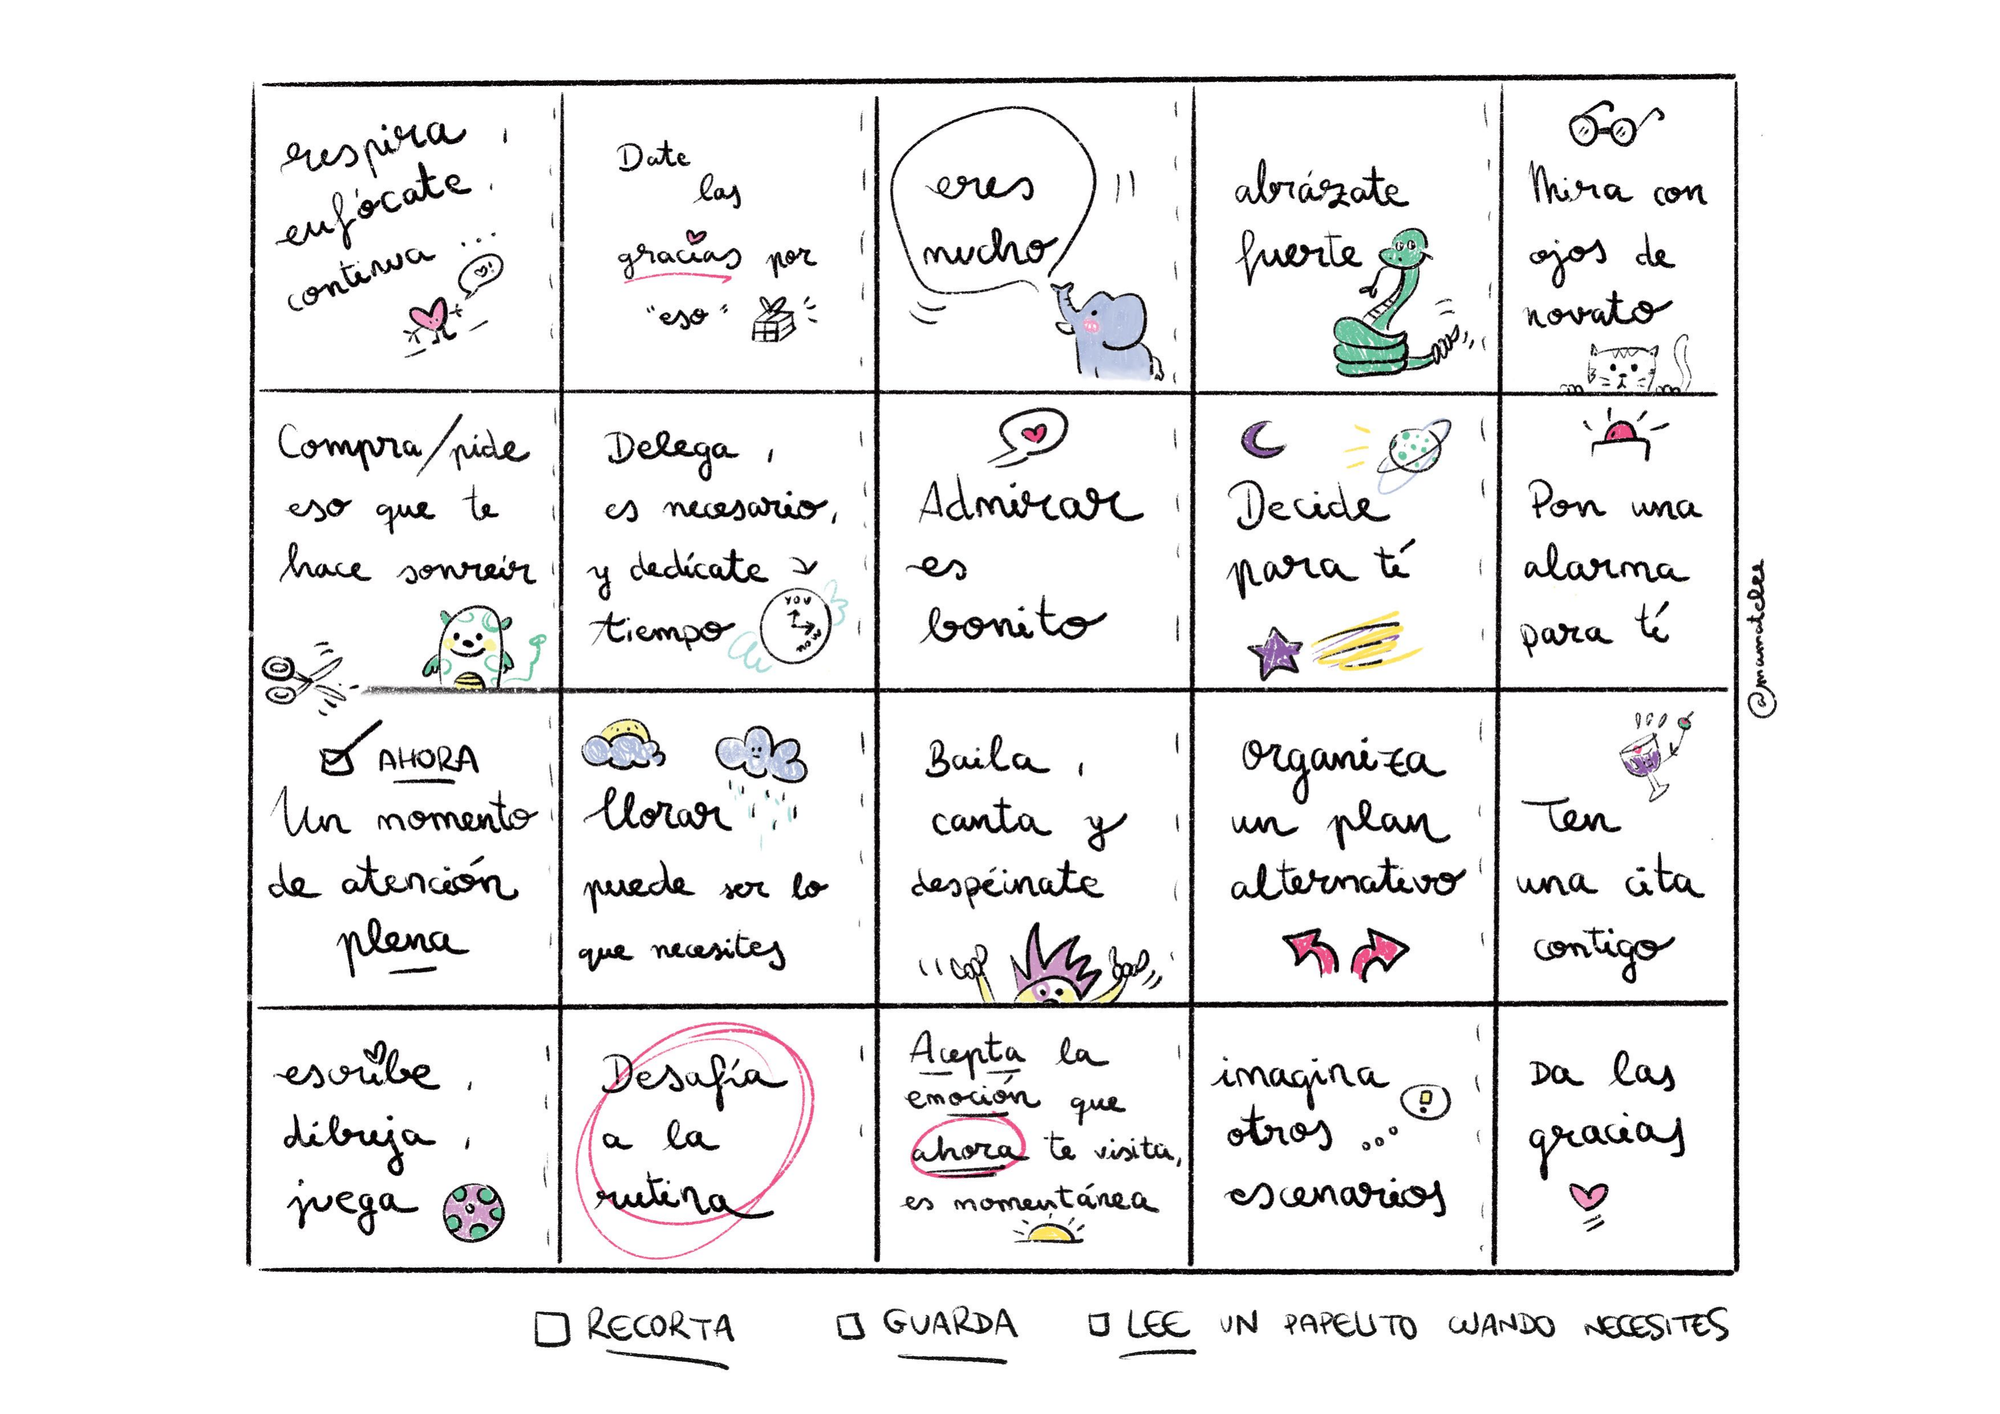 respira,
enfócate.
continua ...
Date
las
gracias por
"eso"
eres
mucho
abrázate
fuerte
Mira con
ojos de
novato
Compra/pide
eso que te
hace sonreír
Delega,
es necesario,
y dedícate
tiempo
YOU
NOW
Admirar
es
bonito
Decide
para tí
Pon una
alarma
para tí
AHORA
Un momento
de atención
plena
llorar
puede ser lo
que necesites
Baila,
canta y
despéinate
organiza
un plan
alternativo
Ten
una cita
contigo
escribe,
dibuja,
juega
Desafía
a la
rutina
Acepta la
emoción que
ahora te visita,
es momentánea
imagina
otros ...
escenarios
Da las
gracias
@mumatcles
RECORTA GUARDA LEE UN PAPELITO CUANDO NECESITES